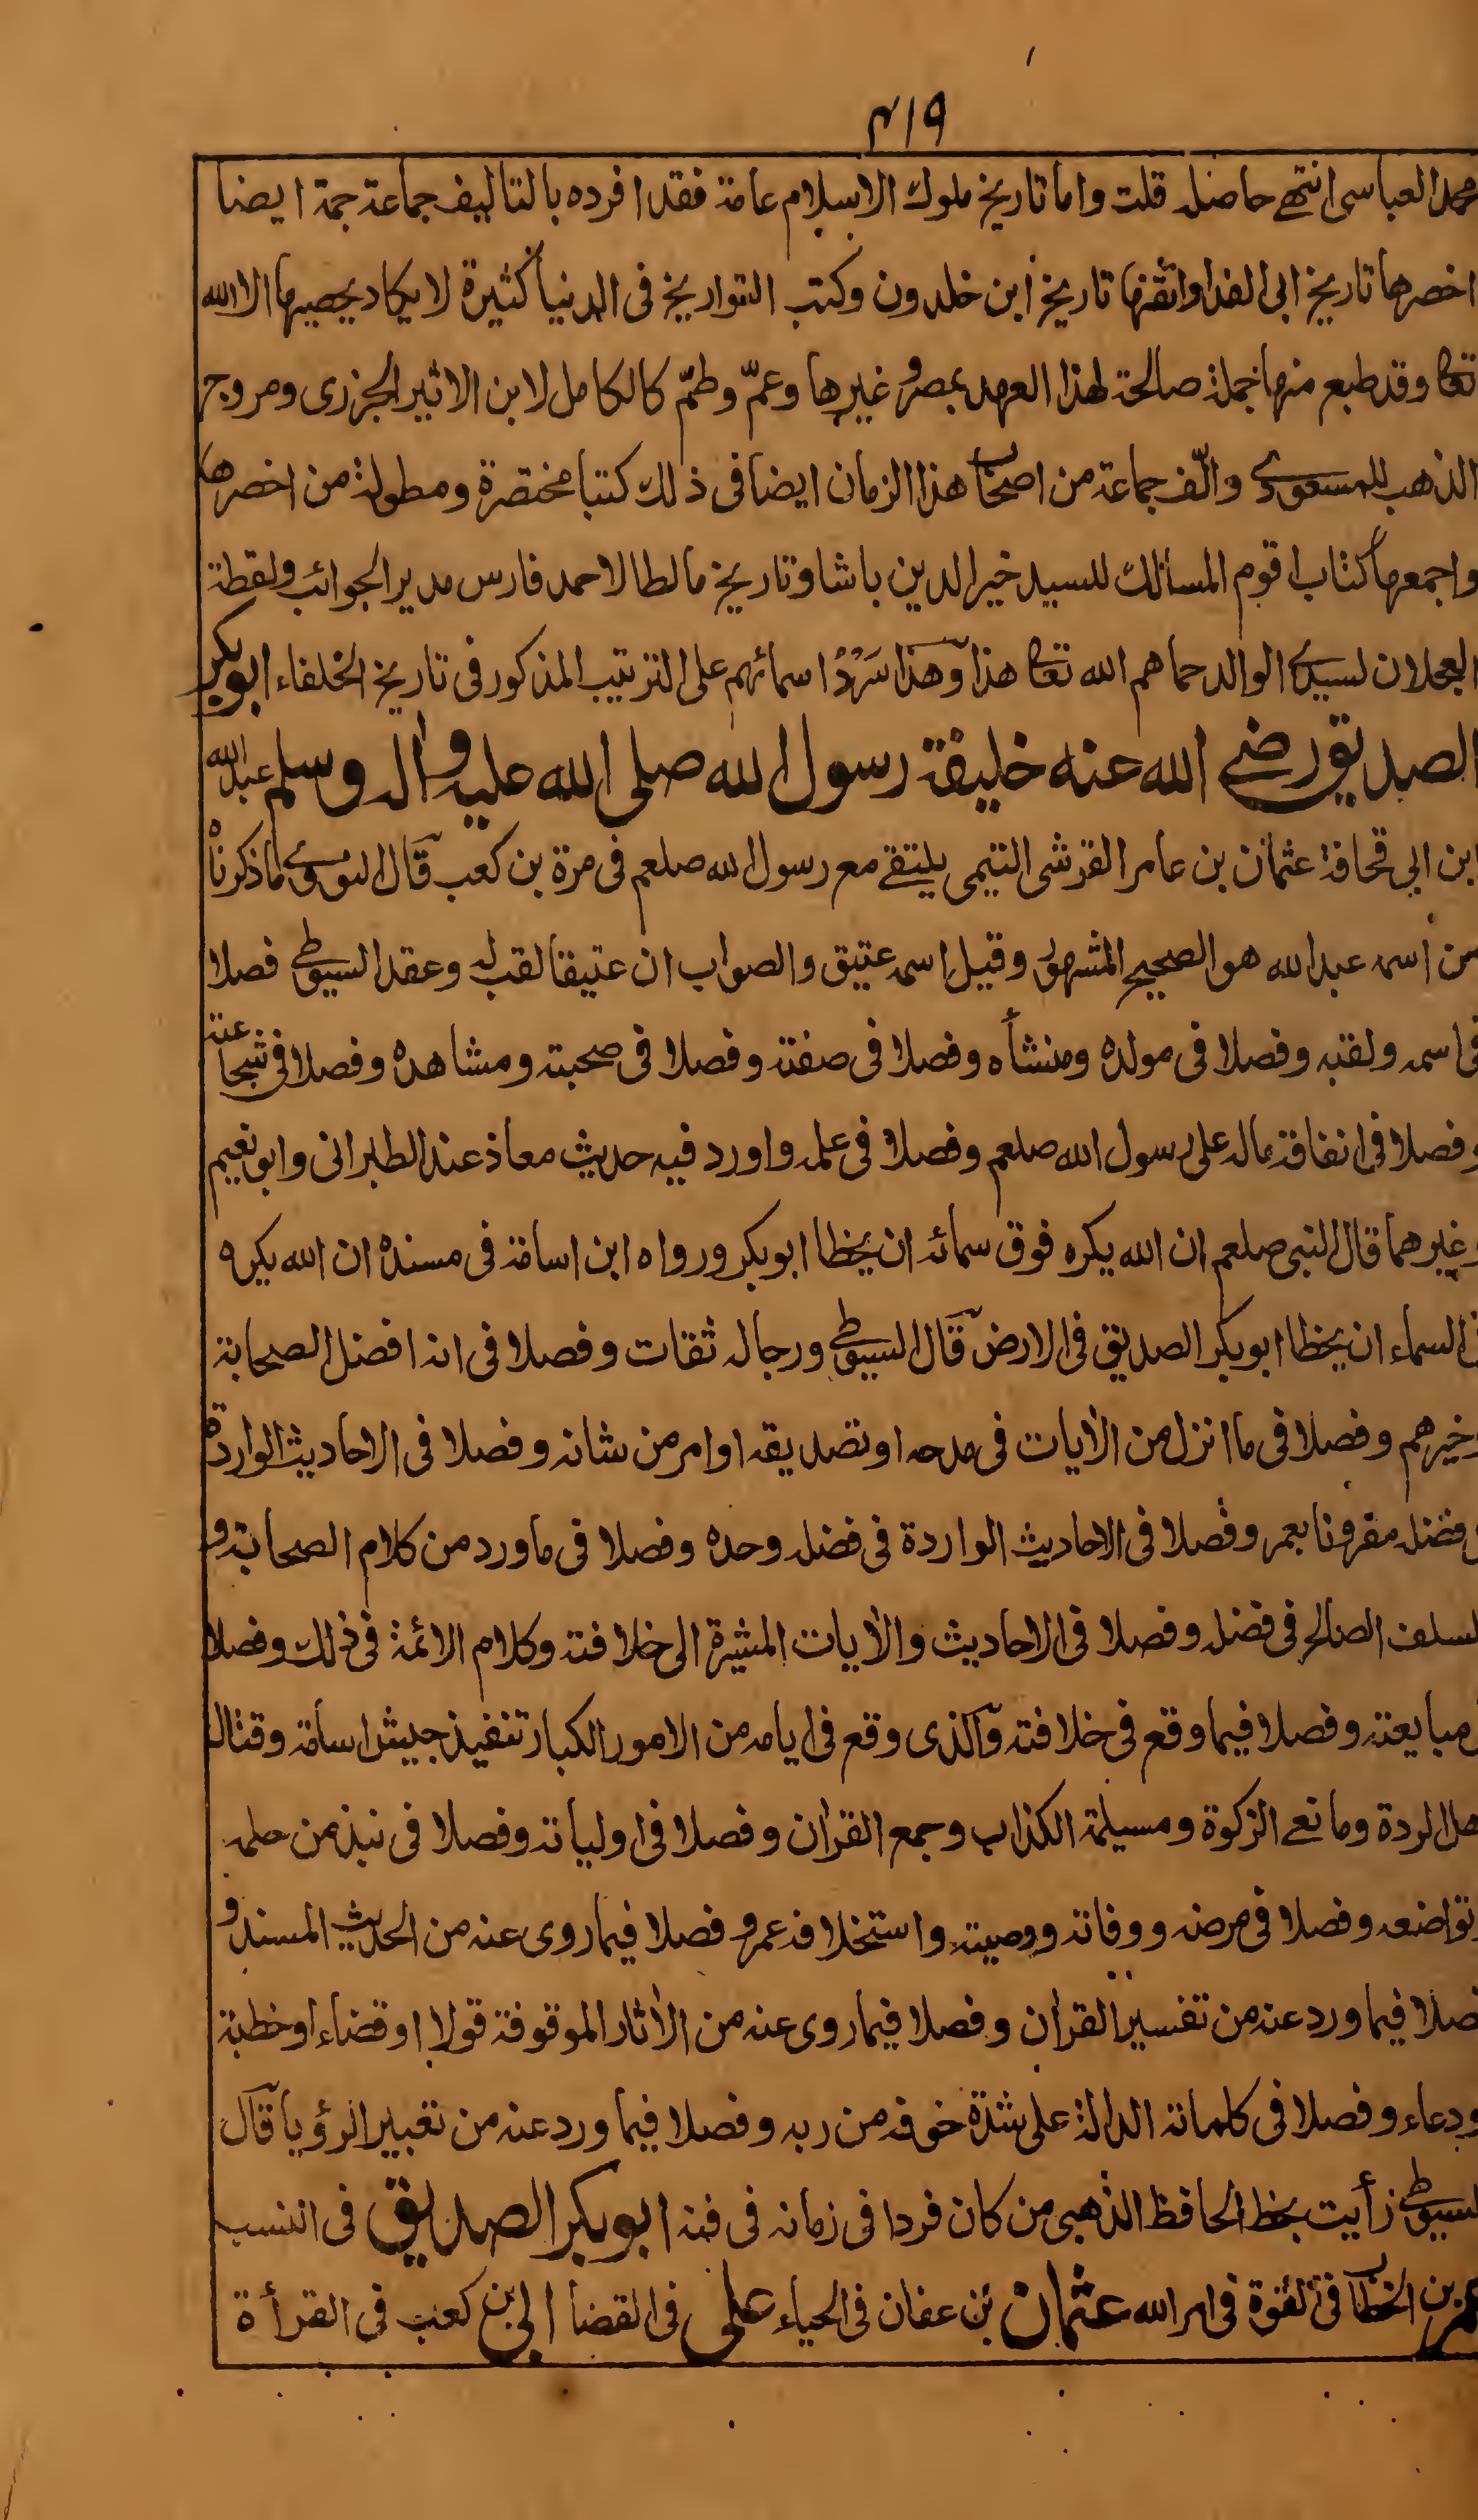 ٤١٩
محمد العباسى انتهے حاصله قلت واما تاريخ ملوك الاسلام عامة فقد افرده بالتاليف جماعة جمة ايضا
اخصرها تاريخ ابى الفدا واتقنها تاريخ ابن خلدون وكتب التواريخ فى الدنيا كثيرة لا يكاد يحصيها الا الله
تعا وقد طبع منها جملة صالحة لهذا العهد بمصر وغيرها وعمّ وطمّ كالكامل لابن الاثير الجزرى ومروج
الذهب للمسعودى والّف جماعة من اصحاب هذا الزمان ايضا فى ذلك كتبا مختصرة ومطولة من اخصرها
واجمعها كتاب اقوم المسالك للسيد خير الدين باشا وتاريخ مالطا لاحمد فارس مدير الجوائب ولقطة
العجلان لسيدى الوالد حماهم الله تعا هذا وهذا سَرْدُ اسمائهم على الترتيب المذكور فى تاريخ الخلفاء ابو بكر
الصديق رضے الله عنه خليفة رسول الله صلى الله عليه واٰله وسلم عبد الله
ابن ابي قحافة عثمان بن عامر القرشى التيمى يلتقے مع رسول الله صلعم فى مرة بن كعب قال النووى ما ذكرناه
من اسمه عبد الله هو الصحيح المشهور وقيل اسمه عتيق والصواب ان عتيقا لقب له وعقد السيوطى فصلا
فى اسمه ولقبه وفصلا فى مولده ومنشأه وفصلا فى صفته وفصلا فى صحبته ومشاهده وفصلا فى شجاعته
وفصلا فى انفاقه ماله على رسول الله صلعم وفصلا فى علمه واورد فيه حديث معاذ عند الطبرانى وابو نعيم
وغيرهما قال النبى صلعم ان الله يكره فوق سمائه ان يخطا ابو بكر ورواه ابن اسامة فى مسنده ان الله يكره
فى السماء ان يخطا ابو بكر الصديق فى الارض قال السيوطى ورجاله ثقات وفصلا فى انه افضل الصحابة
وخيرهم وفصلا فى ما انزل من الاٰيات فى مدحه او تصديقه او امر من شانه وفصلا فى الاحاديث الواردة
فى فضله مقرونا بعمر وفصلا فى الاحاديث الواردة فى فضله وحده وفصلا فى ما ورد من كلام الصحابة و
السلف الصالح فى فضله وفصلا فى الاحاديث والاٰيات المشيرة الى خلافته وكلام الائمة فى ذلك وفصلا
فى مبايعته وفصلا فيما وقع فى خلافته والذى وقع فى ايامه من الامور الكبار تنفيذ جيش اسامة وقتال
اهل الردة ومانعے الزكوة ومسيلمة الكذاب وجمع القراٰن وفصلا فى اولياته وفصلا فى نبذ من حلمه
وتواضعه وفصلا فى مرضه ووفاته ووصيته واستخلافه عمر وفصلا فيما روى عنه من الحديث المسند و
فصلا فيما ورد عنه من تفسير القراٰن وفصلا فيما روى عنه من الاٰثار الموقوفة قولا او قضاء او خطبة
ودعاء وفصلا فى كلماته الدالة على شدة خوفه من ربه وفصلا فيما ورد عنه من تعبير الرؤيا قال
السيوطى رأيت بخط الحافظ الذهبى من كان فردا فى زمانه فى فنه ابو بكر الصديق فى النسب
عمر بن الخطاب فى القوة فى امر الله عثمان بن عفان فى الحياء على فى القضا ابى بن كعب فى القرأة